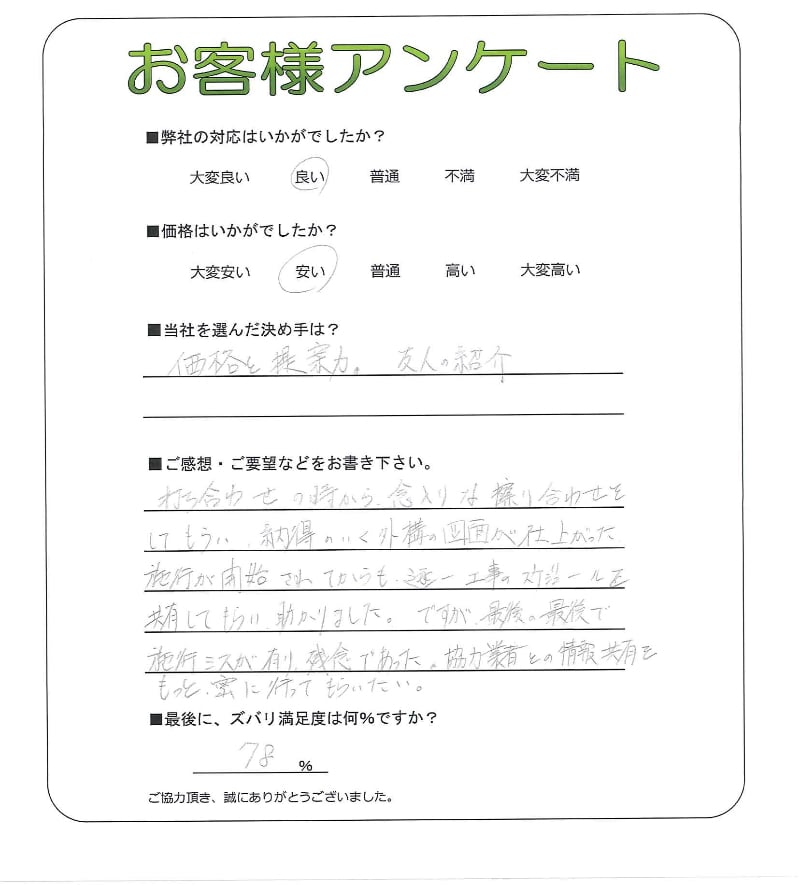 お客様アンケート
■弊社の対応はいかがでしたか？
大変良い 良い 普通 不満 大変不満
■価格はいかがでしたか？
大変安い 安い 普通 高い 大変高い
■当社を選んだ決め手は？
価格と提案力。 友人の紹介
■ご感想・ご要望などをお書き下さい。
打ち合わせの時から、念入りな擦り合わせを
してもらい、納得のいく外構の図面が仕上がった
施行が開始されてからも、逐一工事のスケジュールを
共有してもらい、助かりました。ですが、最後の最後で
施行ミスが有り、残念であった。協力業者との情報共有を
もっと、密に行ってもらいたい。
■最後に、ズバリ満足度は何%ですか？
78 %
ご協力頂き、誠にありがとうございました。